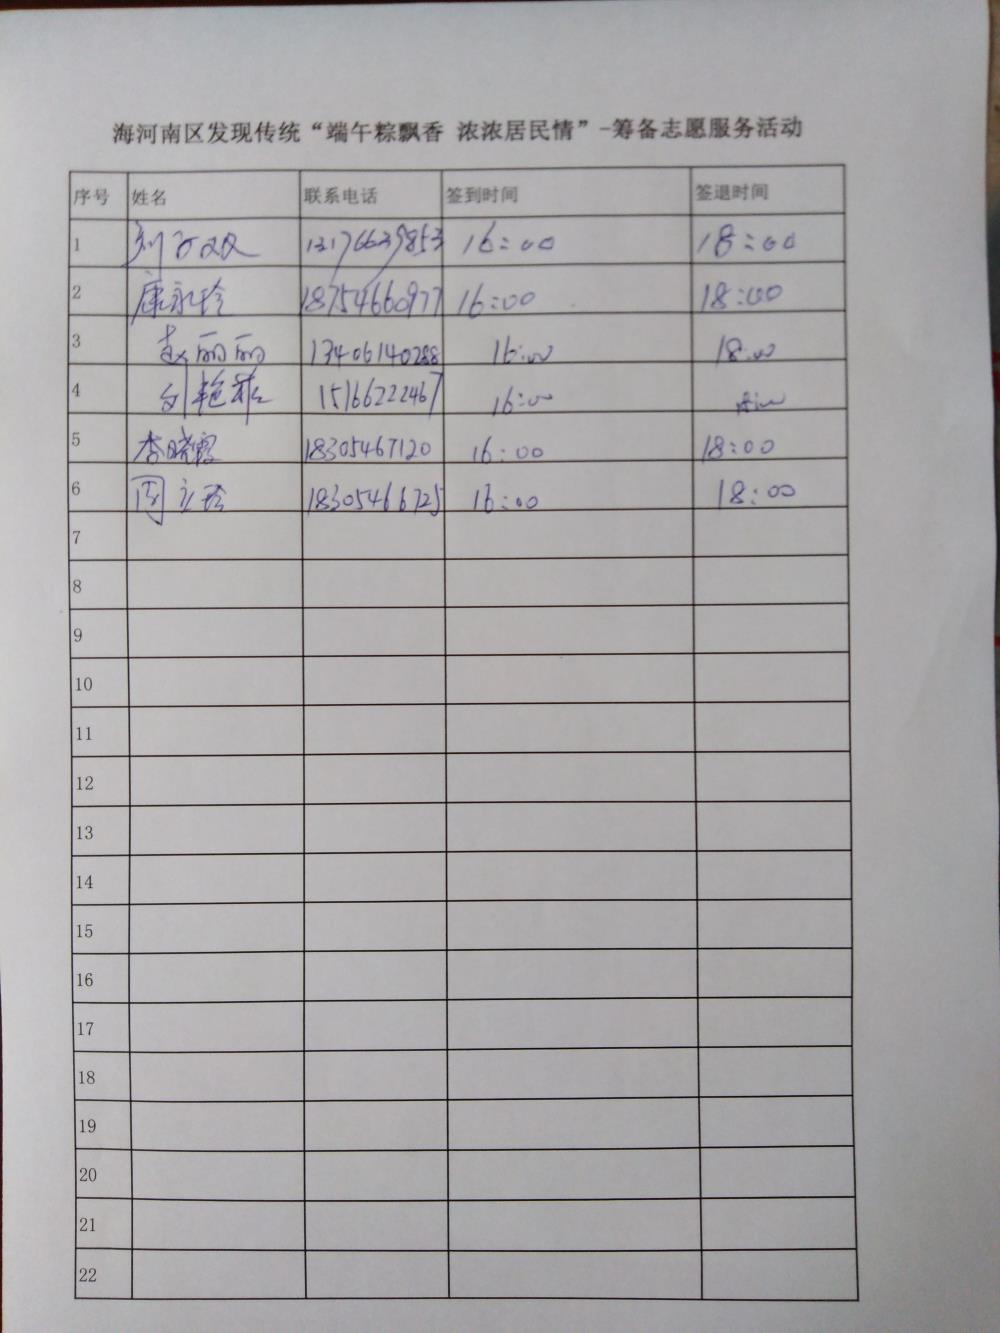 海河南区发现传统“端午粽飘香 浓浓居民情”-筹备志愿服务活动
序号 姓名 联系电话 签到时间 签退时间
1 13176639853 16:00 18:00
2 康永玲 18754660977 16:00 18:00
3 赵丽丽 13406140288 16:00 18:00
4 刘艳菲 15166222467 16:00
5 李晓霞 18305467120 16:00 18:00
6 周立玲 18305466725 16:00 18:00
7
8
9
10
11
12
13
14
15
16
17
18
19
20
21
22